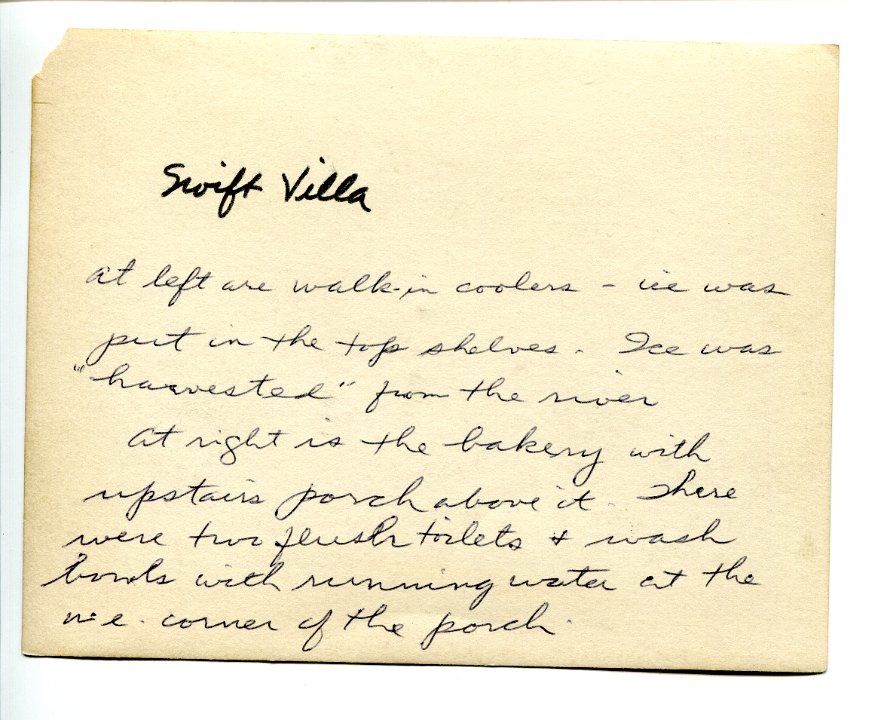 Swift Villa
at left are walk-in coolers - ice was
put in the top shelves. Ice was
"harvested" from the river
at right is the bakery with
upstairs porch above it. There
were two flush toilets + wash
bowls with running water at the
n.e. corner of the porch.